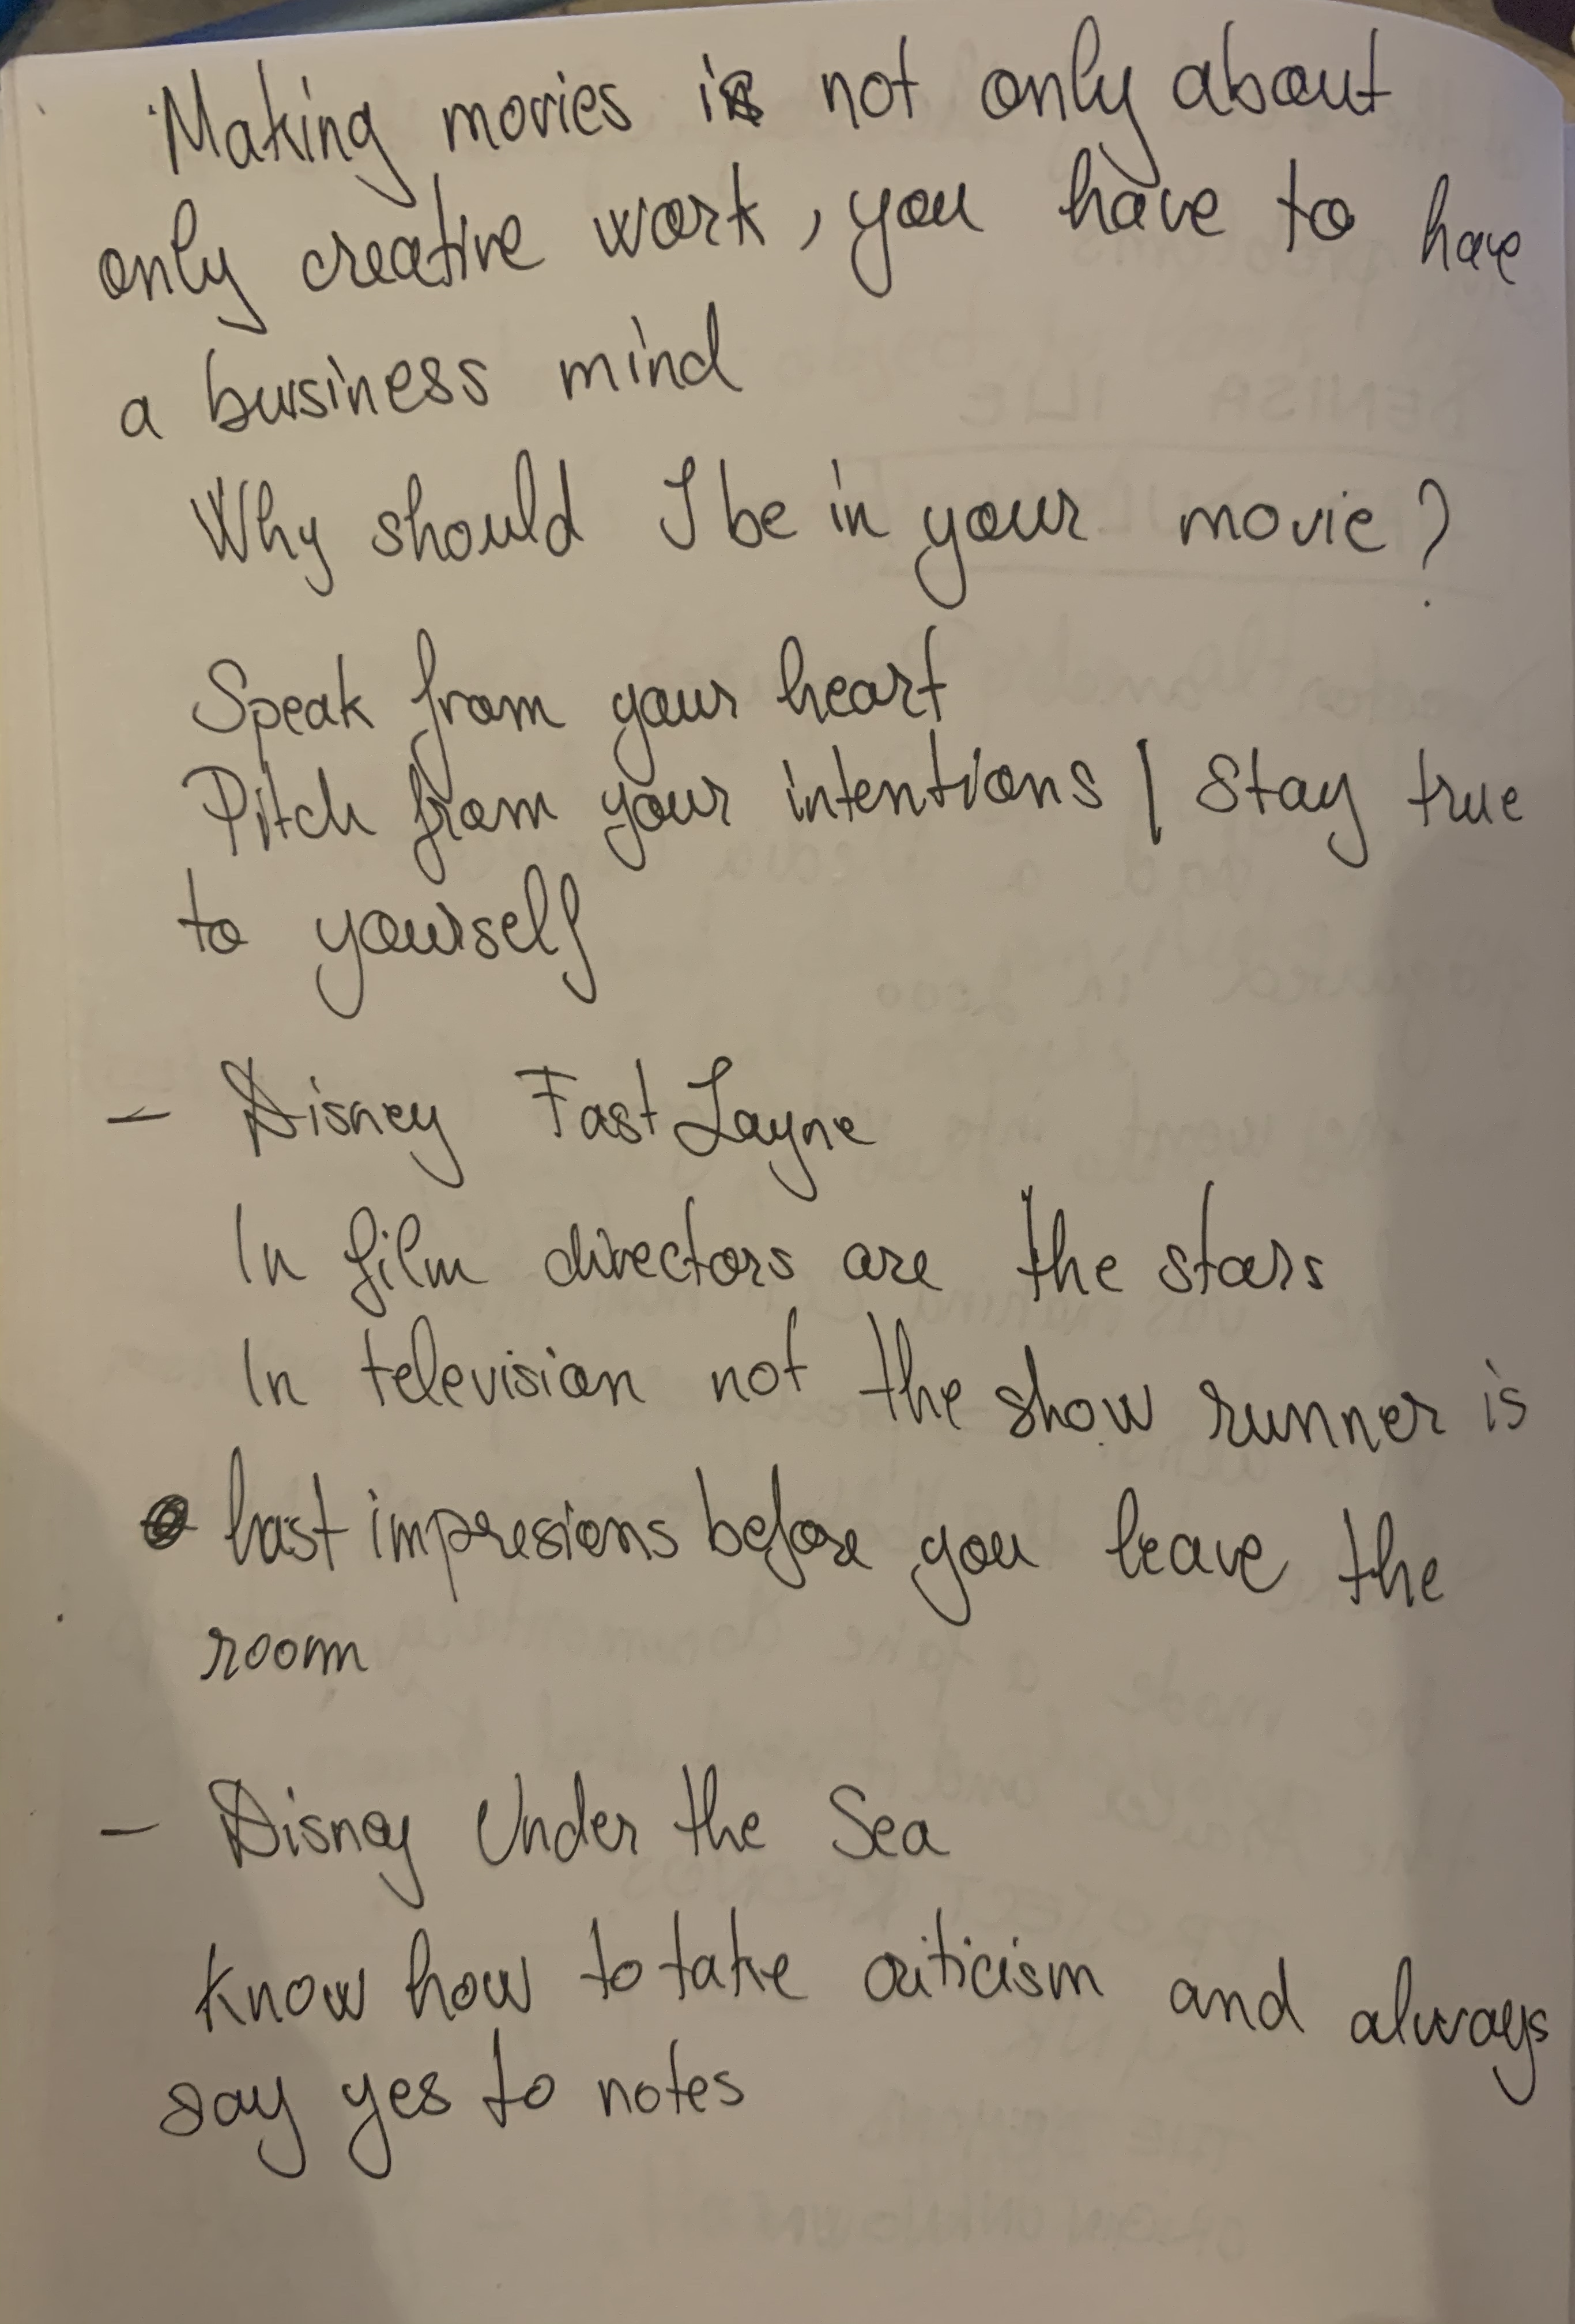 Making movies is not only about
only creative work, you have to have
a business mind
Why should I be in your movie?
Speak from your heart
Pitch from your intentions | Stay true
to yourself
- Disney Fast Layne
In film directors are the stars
In television not the show runner is
Last impresions before you leave the
room
- Disney Under the Sea
Know how to take criticism and always
say yes to notes